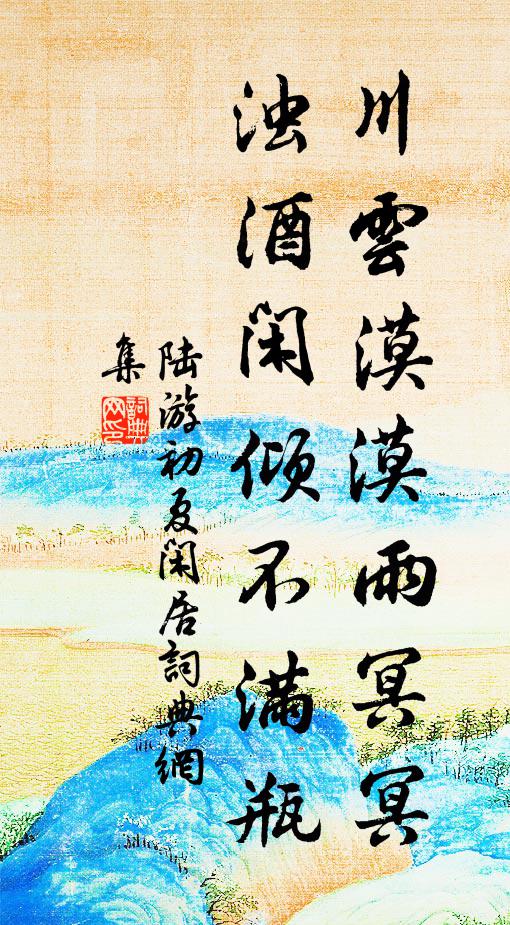 川雲漠漠雨冥冥
浊酒闲倾不满瓶
陆游初夏闲居詞典網
集
詞典網印